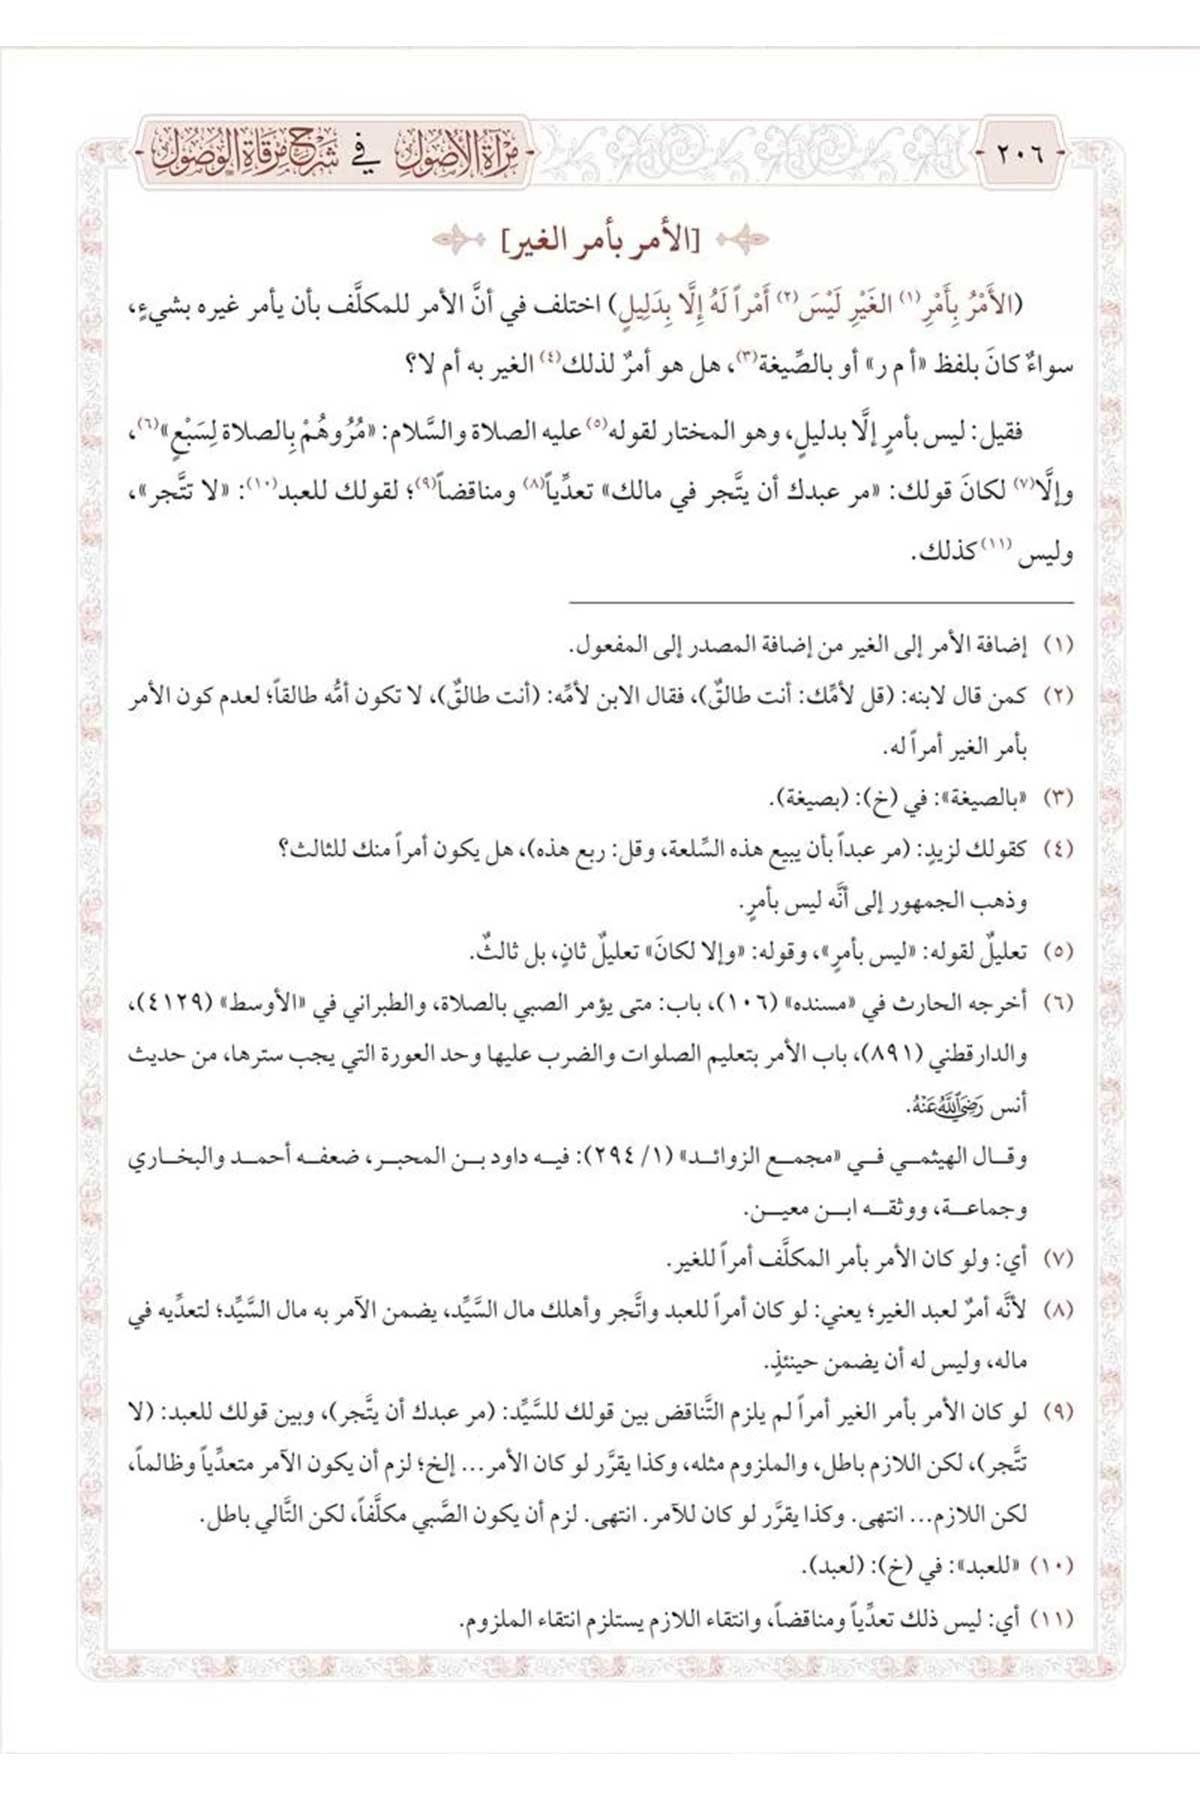 ٢٠٦
مرآة الأصول في شرح مرقاة الوصول
[الأمر بأمر الغير]
(الأَمْرُ بِأَمْرِ(١) الغَيْرِ لَيْسَ(٢) أَمْراً لَهُ إِلَّا بِدَلِيلٍ) اختلف في أنَّ الأمر للمكلَّف بأن يأمر غيره بشيءٍ،
سواءٌ كانَ بلفظ «أ م ر» أو بالصِّيغة(٣)، هل هو أمرٌ لذلك(٤) الغير به أم لا؟
فقيل: ليس بأمرٍ إلَّا بدليلٍ، وهو المختار لقوله(٥) عليه الصلاة والسَّلام: «مُرُوهُمْ بِالصلاة لِسَبْعٍ»(٦)،
وإلَّا(٧) لكانَ قولك: «مر عبدك أن يتَّجر في مالك» تعدِّياً(٨) ومناقضاً(٩)؛ لقولك للعبد(١٠): «لا تتَّجر»،
وليس(١١) كذلك.
(١) إضافة الأمر إلى الغير من إضافة المصدر إلى المفعول.
(٢) كمن قال لابنه: (قل لأمِّك: أنت طالقٌ)، فقال الابن لأمِّه: (أنت طالقٌ)، لا تكون أمُّه طالقاً؛ لعدم كون الأمر
بأمر الغير أمراً له.
(٣) «بالصيغة»: في (خ): (بصيغة).
(٤) كقولك لزيدٍ: (مر عبداً بأن يبيع هذه السِّلعة، وقل: ربع هذه)، هل يكون أمراً منك للثالث؟
وذهب الجمهور إلى أنَّه ليس بأمرٍ.
(٥) تعليلٌ لقوله: «ليس بأمرٍ»، وقوله: «وإلا لكانَ» تعليلٌ ثانٍ، بل ثالثٌ.
(٦) أخرجه الحارث في «مسنده» (١٠٦)، باب: متى يؤمر الصبي بالصلاة، والطبراني في «الأوسط» (٤١٢٩)،
والدارقطني (٨٩١)، باب الأمر بتعليم الصلوات والضرب عليها وحد العورة التي يجب سترها، من حديث
أنس رَضِيَ اللَّهُ عَنْهُ.
وقال الهيثمي في «مجمع الزوائد» (١/ ٢٩٤): فيه داود بن المحبر، ضعفه أحمد والبخاري
وجماعة، ووثقه ابن معين.
(٧) أي: ولو كان الأمر بأمر المكلَّف أمراً للغير.
(٨) لأنَّه أمرٌ لعبد الغير؛ يعني: لو كان أمراً للعبد واتَّجر وأهلك مال السَّيِّد، يضمن الآمر به مال السَّيِّد؛ لتعدِّيه في
ماله، وليس له أن يضمن حينئذٍ.
(٩) لو كان الأمر بأمر الغير أمراً لم يلزم التَّناقض بين قولك للسَّيِّد: (مر عبدك أن يتَّجر)، وبين قولك للعبد: (لا
تتَّجر)، لكن اللازم باطل، والملزوم مثله، وكذا يقرَّر لو كان الأمر... إلخ؛ لزم أن يكون الآمر متعدِّياً وظالماً،
لكن اللازم... انتهى. وكذا يقرَّر لو كان للآمر. انتهى. لزم أن يكون الصَّبي مكلَّفاً، لكن التَّالي باطل.
(١٠) «للعبد»: في (خ): (لعبد).
(١١) أي: ليس ذلك تعدِّياً ومناقضاً، وانتقاء اللازم يستلزم انتقاء الملزوم.